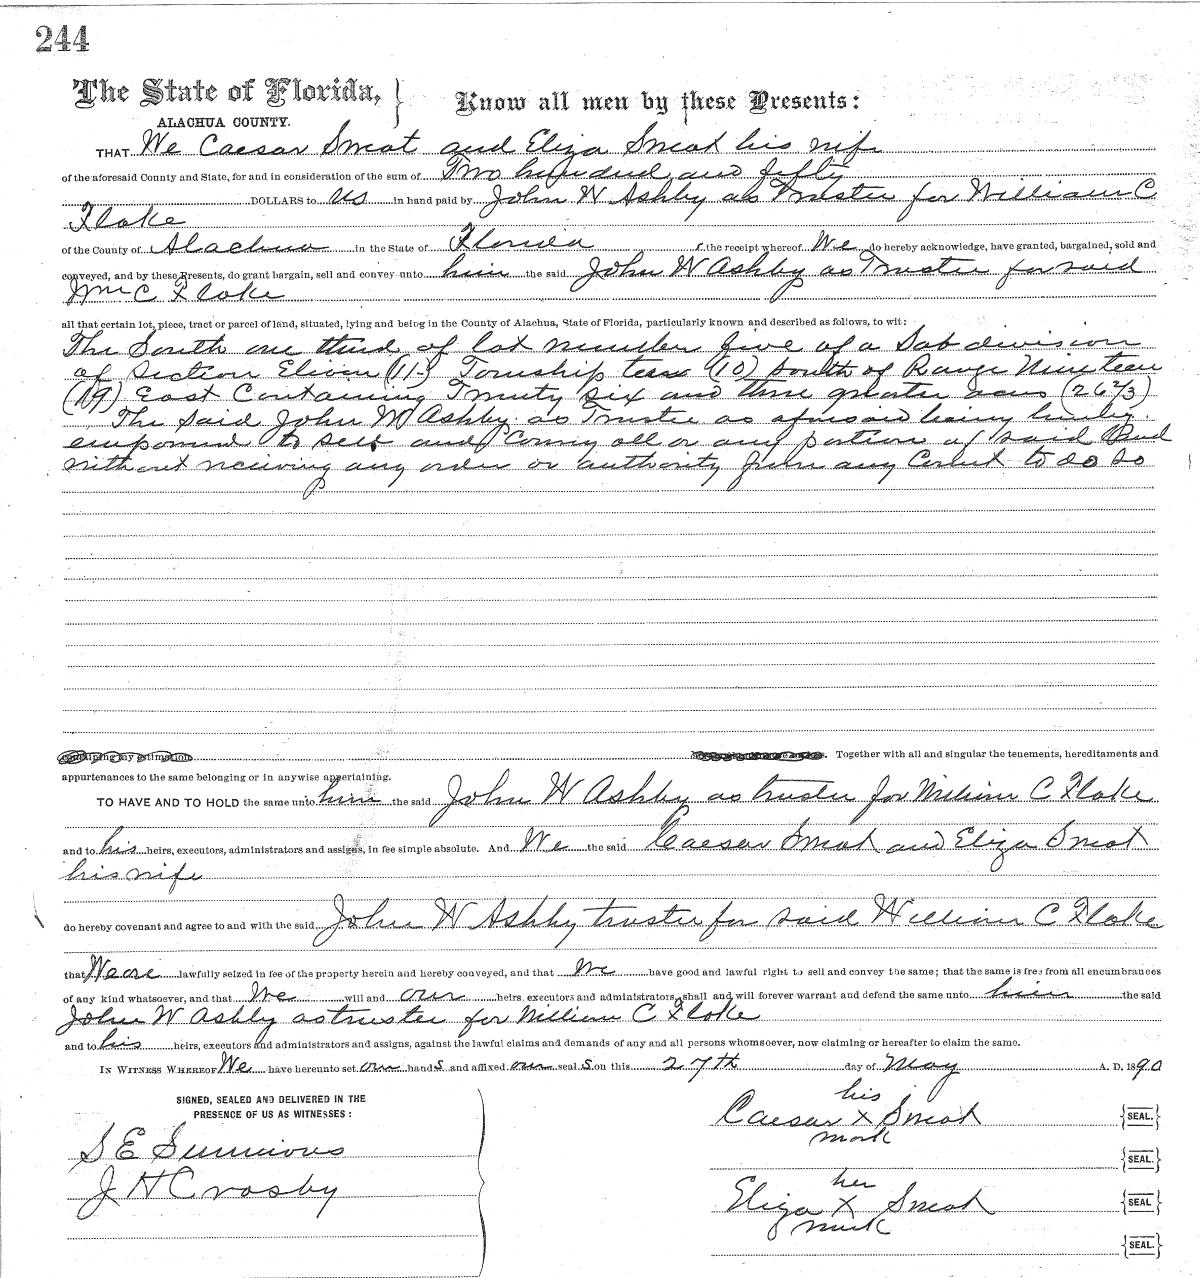 244
The State of Florida, } Know all men by these Presents:
ALACHUA COUNTY.
THAT We Caesar Smeat and Eliza Smeat his wife
of the aforesaid County and State, for and in consideration of the sum of Two hundred and fifty
DOLLARS to us in hand paid by John W Ashby as Trustee for William C
Floke
of the County of Alachua in the State of Florida the receipt whereof We do hereby acknowledge, have granted, bargained, sold and
conveyed, and by these Presents, do grant bargain, sell and convey unto him the said John W Ashby as Trustee for said
Wm C Floke
all that certain lot, piece, tract or parcel of land, situated, lying and being in the County of Alachua, State of Florida, particularly known and described as follows, to wit:
The South one third of lot number five of a Sub division
of Section Eleven (11) Township ten (10) South of Range Nineteen
(19) East Containing Twenty six and three acres (26 2/3)
The Said John W Ashby as Trustee as aforesaid being hereby
empowered to sell and Convey all or any portion of said land
without receiving any order or authority from any Court to do so
Together with all and singular the tenements, hereditaments and
appurtenances to the same belonging or in anywise appertaining.
TO HAVE AND TO HOLD the same unto him the said John W Ashby as trustee for William C Floke
and to his heirs, executors, administrators and assigns, in fee simple absolute. And We the said Caesar Smeat and Eliza Smeat
his wife
do hereby covenant and agree to and with the said John W Ashby trustee for said William C Floke
that We are lawfully seized in fee of the property herein and hereby conveyed, and that We have good and lawful right to sell and convey the same; that the same is free from all encumbrances
of any kind whatsoever, and that We will and our heirs, executors and administrators, shall and will forever warrant and defend the same unto him the said
John W Ashby as trustee for William C Floke
and to his heirs, executors and administrators and assigns, against the lawful claims and demands of any and all persons whomsoever, now claiming or hereafter to claim the same.
IN WITNESS WHEREOF We have hereunto set our hands and affixed our seal s on this 27th day of May A. D. 1890
SIGNED, SEALED AND DELIVERED IN THE
PRESENCE OF US AS WITNESSES:
S E Summons
J H Crosby
his
Caesar X Smeat {SEAL.}
mark
{SEAL.}
her
Eliza X Smeat {SEAL}
mark
{SEAL.}